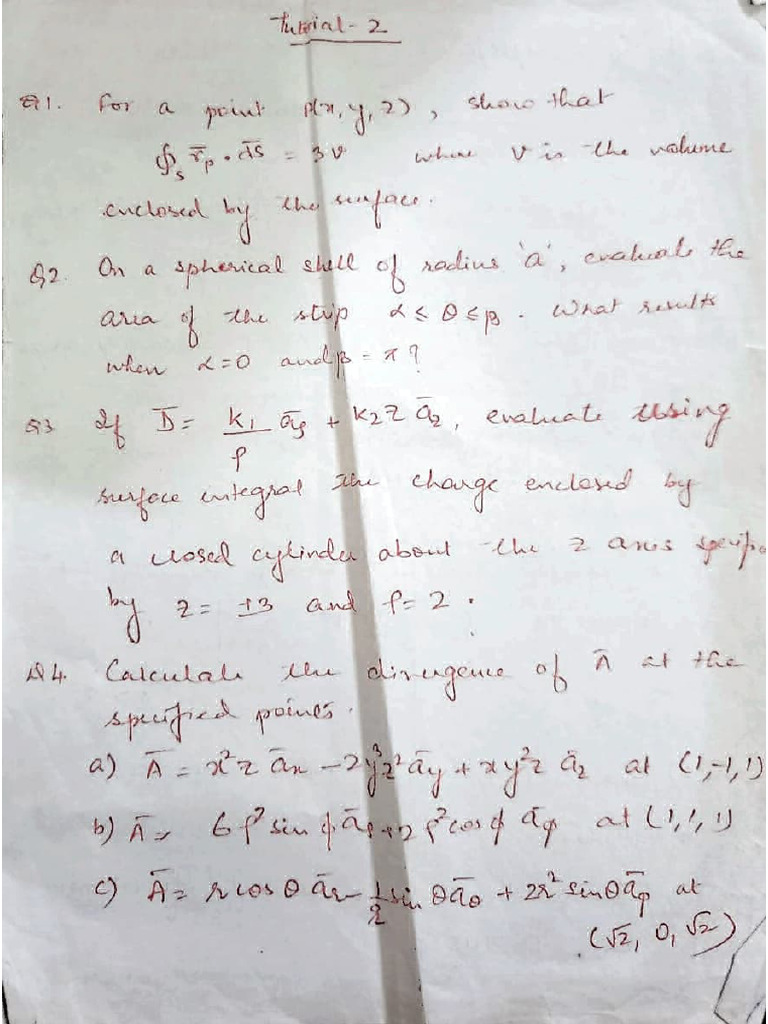 Tutorial - 2
Q1. For a point P(x, y, z), show that
∮s r̄p · d̄s = 3v where v is the volume
enclosed by the surface.
Q2. On a spherical shell of radius 'a', evaluate the
area of the strip α ≤ θ ≤ β. What results
when α=0 and β = π?
Q3 If D̄ = K1/ρ āρ + K2 z āz, evaluate using
surface integral the charge enclosed by
a closed cylinder about the z axis
by z = ±3 and ρ= 2.
Q4. Calculate the divergence of Ā at the
specified points.
a) Ā = x²z āx − 2y³z² āy + xy²z āz at (1,-1,1)
b) Ā = 6ρ² sin φ āρ + 2ρ² cos φ āφ at (1,1,1)
c) Ā = r cos θ ār − 1/r sin θ āθ + 2r² sin θ āφ at
(√2, 0, √2)